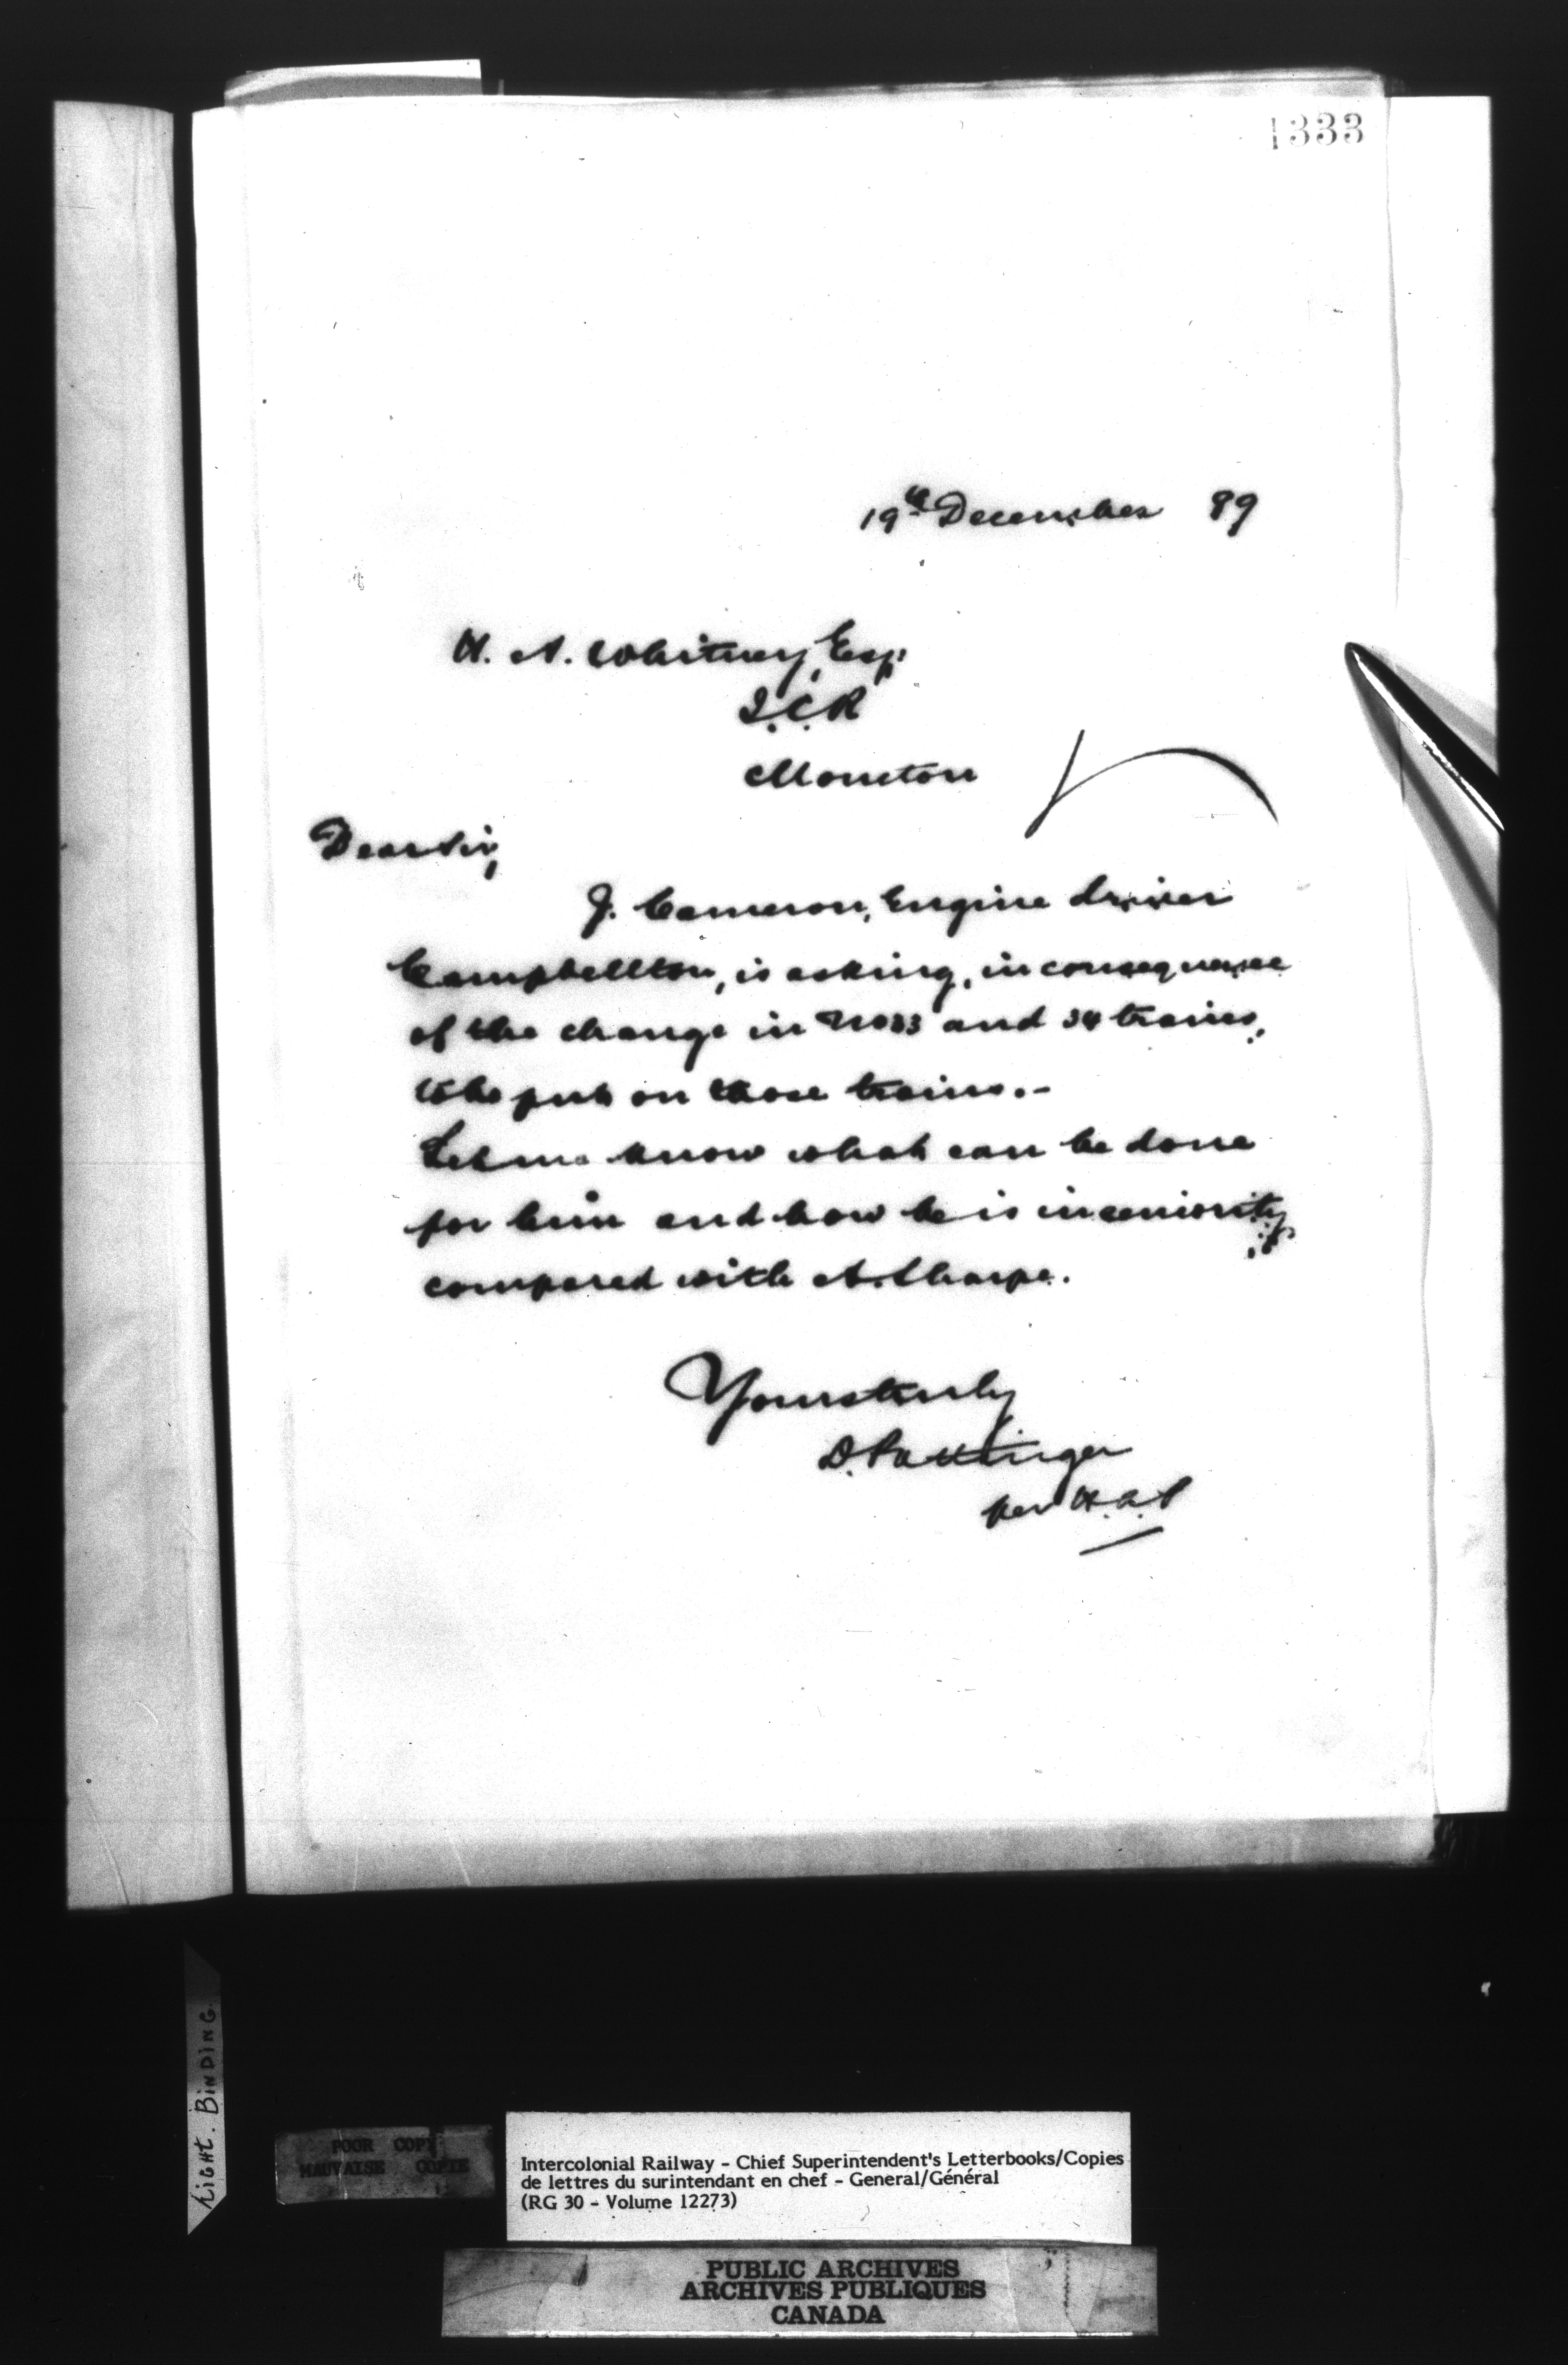 1333
19th December 89
H. A. Whitney, Esq:
I.C.R
Moncton
Dear Sir,
J. Cameron, Engine driver
Campbellton, is asking, in consequence
of the change in No 33 and 34 trains,
to be put on those trains.-
Let me know what can be done
for him and how he is in seniority
compared with A. Sharpe.
Yours truly
D. Pottinger
per H.A.P
LIGHT. BINDING.
POOR COPY
MAUVAISE COPIE
Intercolonial Railway - Chief Superintendent's Letterbooks/Copies
de lettres du surintendant en chef - General/Général
(RG 30 - Volume 12273)
PUBLIC ARCHIVES
ARCHIVES PUBLIQUES
CANADA